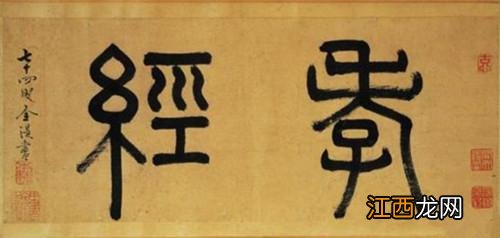 孝經
七十四叟金湜書
江西龙网